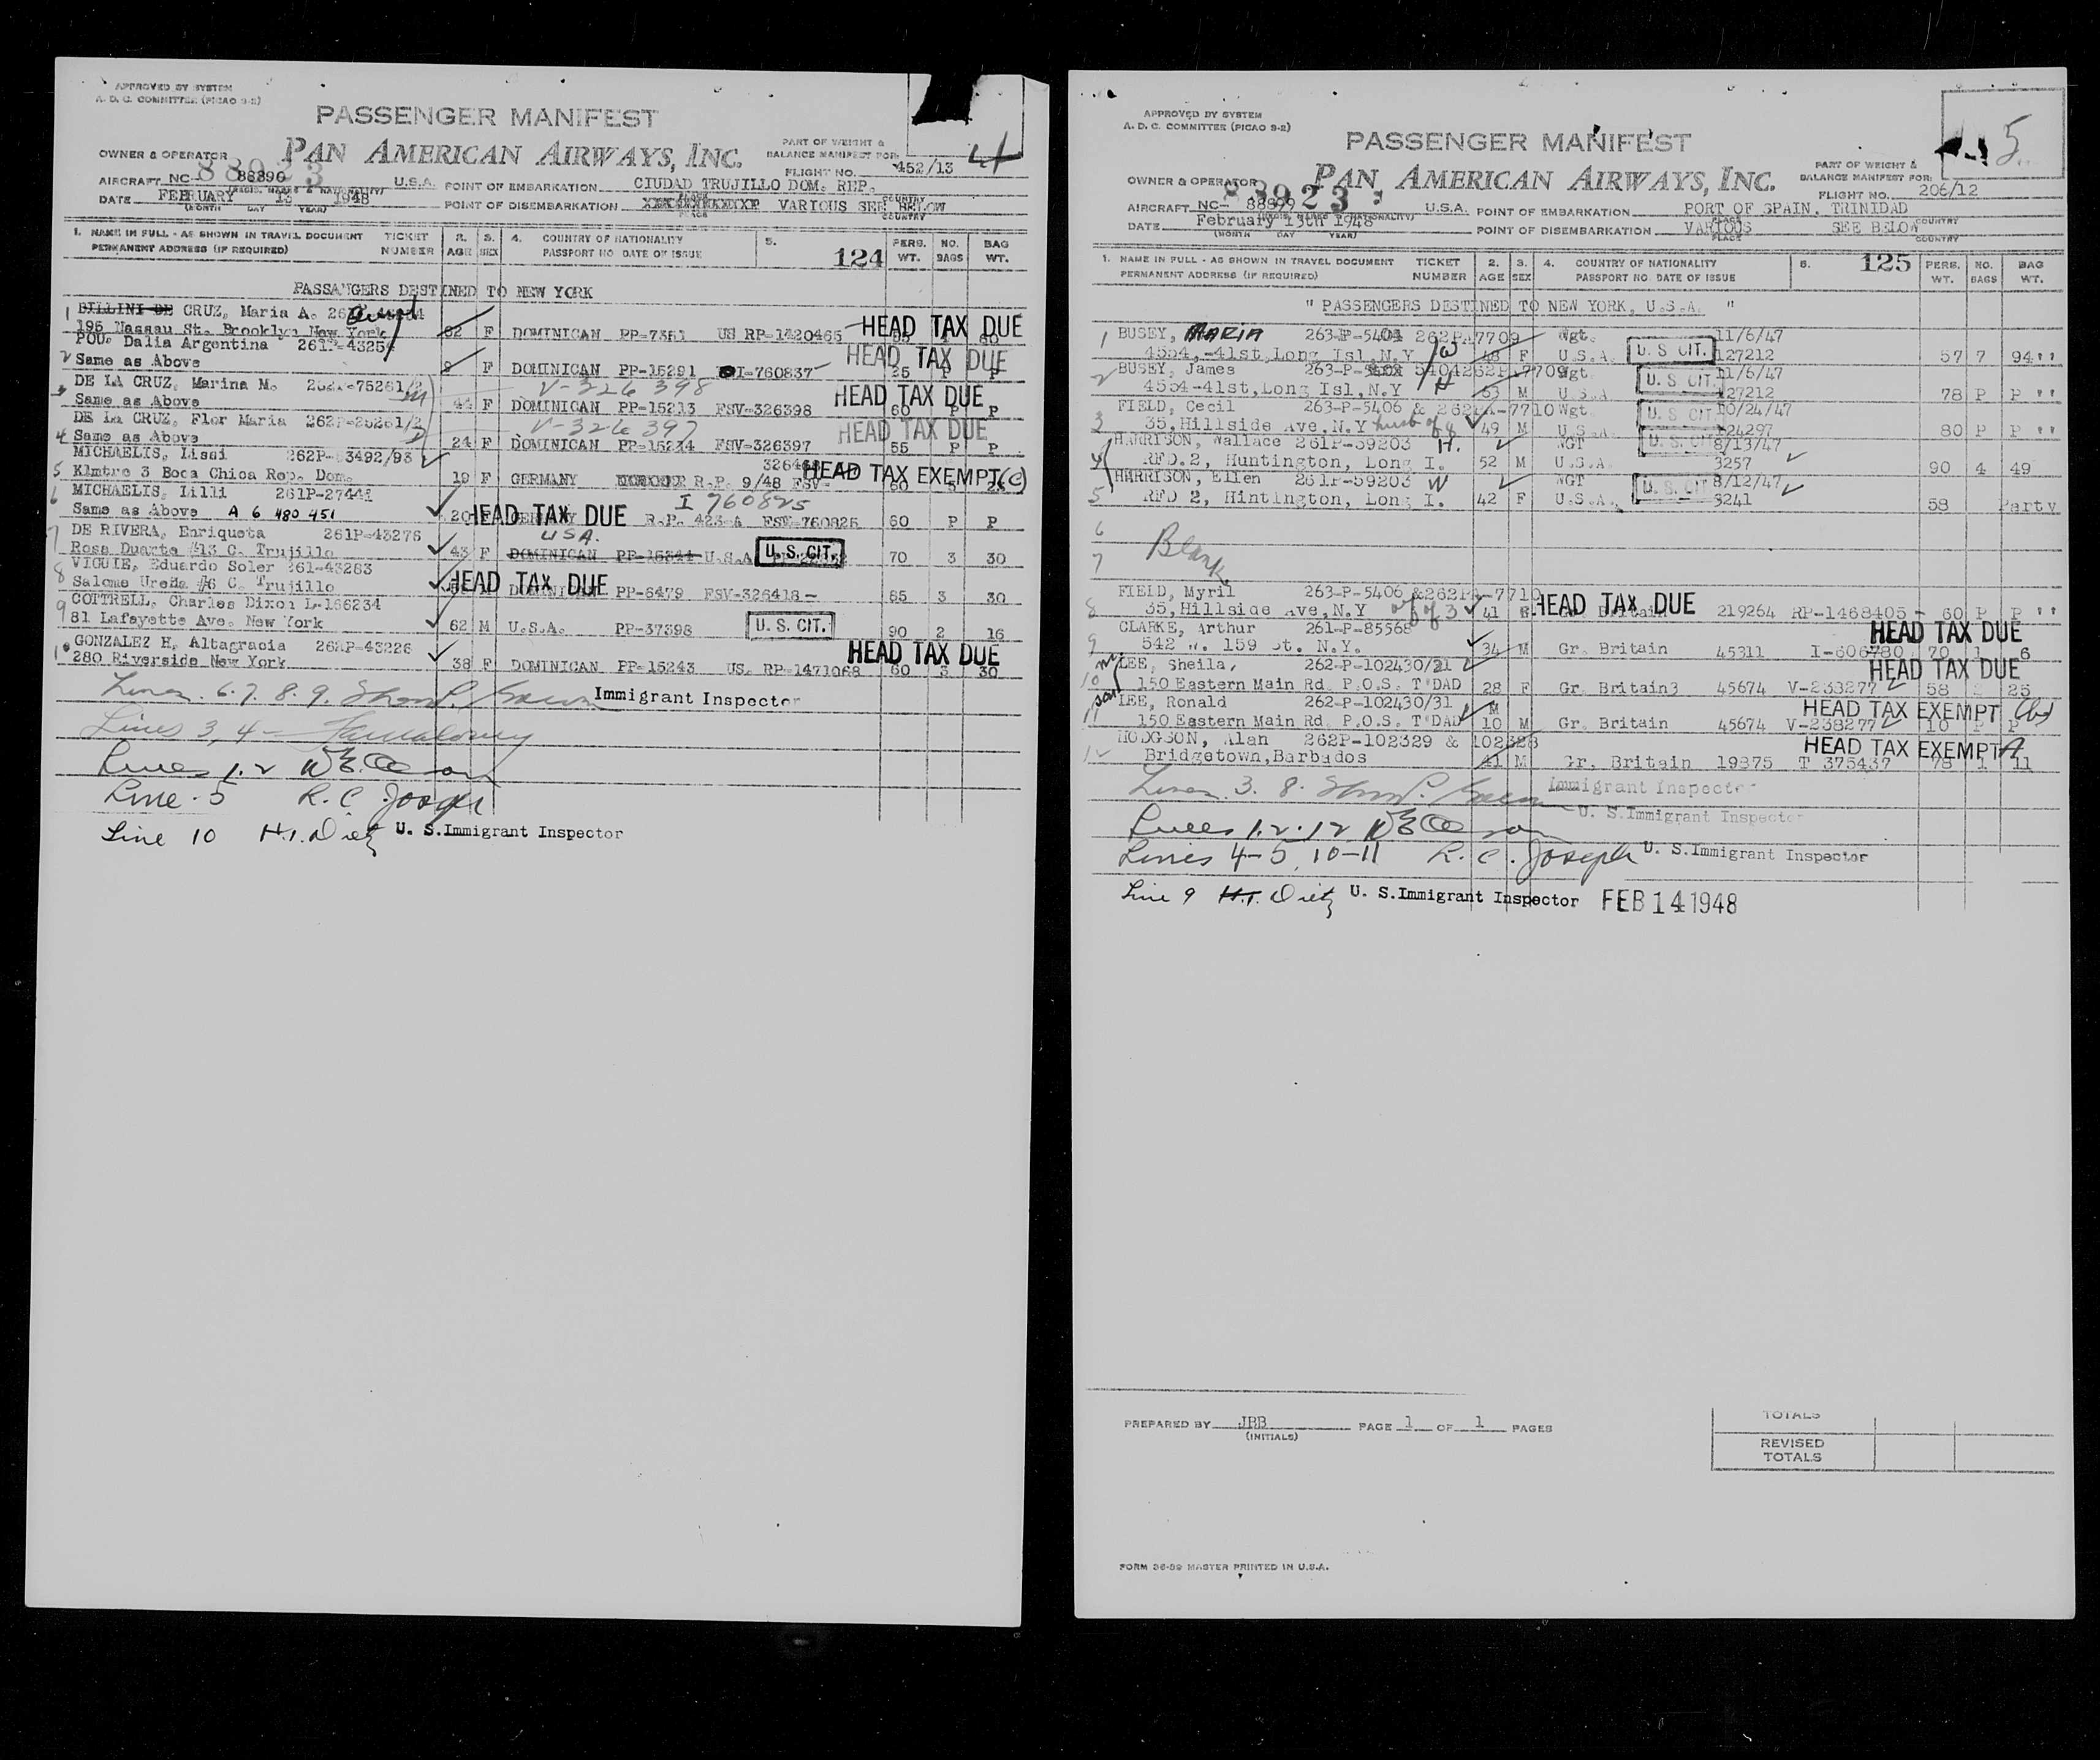 APPROVED BY SYSTEM
A. D. C. COMMITTEE (PICAO 9-2)
PASSENGER MANIFEST
PAN AMERICAN AIRWAYS, INC.
PART OF WEIGHT &
BALANCE MANIFEST FOR:
4
OWNER & OPERATOR
88923
FLIGHT NO. 452/13
AIRCRAFT NC- 88890 U.S.A. POINT OF EMBARKATION CIUDAD TRUJILLO DOM. REP.
DATE FEBRUARY 13 1948 POINT OF DISEMBARKATION VARIOUS SEE BELOW
(MONTH DAY YEAR) PLACE COUNTRY
1. NAME IN FULL - AS SHOWN IN TRAVEL DOCUMENT TICKET 2. 3. 4. COUNTRY OF NATIONALITY 5. PERS. NO. BAG
PERMANENT ADDRESS (IF REQUIRED) NUMBER AGE SEX PASSPORT NO DATE OF ISSUE 124 WT. BAGS WT.
PASSANGERS DESTINED TO NEW YORK
1 BILLINI DE CRUZ, Maria A.
195 Nassau St. Brooklyn New York 62 F DOMINICAN PP-7361 US RP-1420465 HEAD TAX DUE
POU, Dalia Argentina 261P-43254
2 Same as Above 9 F DOMINICAN PP-15291 I-760837 HEAD TAX DUE 25 P P
DE LA CRUZ, Marina M. V-326398
3 Same as Above 44 F DOMINICAN PP-15213 FSV-326398 HEAD TAX DUE 60 P P
DE LA CRUZ, Flor Maria V-326397
4 Same as Above 24 F DOMINICAN PP-15214 FSV-326397 HEAD TAX DUE 55 P P
MICHAELIS, Lissi
5 Klmtro 3 Boca Chica Rep. Dom. 19 F GERMANY R.P. 9/48 FSV- HEAD TAX EXEMPT (C)
6 MICHAELIS, Lilli 261P-27441 I 760825
Same as Above A 6 480 451 20 HEAD TAX DUE R.P. 423-A FSV-760825 60 P P
7 DE RIVERA, Enriqueta 261P-43276 USA.
Rosa Duarte #13 C. Trujillo 43 F DOMINICAN PP-15344 U.S.A. U.S. CIT. 70 3 30
8 VIGUIE, Eduardo Soler 261-43283
Salome Ureña #6 C. Trujillo HEAD TAX DUE PP-6479 FSV-326418 - 85 3 30
9 COTTRELL, Charles Dixon L-166234
81 Lafayette Ave. New York 62 M U.S.A. PP-37398 U.S. CIT. 90 2 16
10 GONZALEZ H, Altagracia 43226 HEAD TAX DUE
280 Riverside New York 38 F DOMINICAN PP-15243 US. RP-1471068 60 3 30
Lines 6.7.8.9. Immigrant Inspector
Lines 3, 4 -
Lines 1.2
Line 5 R. C. Joseph
Line 10 H.T. Dietz U. S. Immigrant Inspector
APPROVED BY SYSTEM
A. D. C. COMMITTEE (PICAO 9-2)
PASSENGER MANIFEST
5
PAN AMERICAN AIRWAYS, INC.
PART OF WEIGHT &
BALANCE MANIFEST FOR:
OWNER & OPERATOR
88923
FLIGHT NO. 206/12
AIRCRAFT NC- U.S.A. POINT OF EMBARKATION PORT OF SPAIN, TRINIDAD
DATE February 13th 1948 POINT OF DISEMBARKATION VARIOUS SEE BELOW
(MONTH DAY YEAR) PLACE COUNTRY
1. NAME IN FULL - AS SHOWN IN TRAVEL DOCUMENT TICKET 2. 3. 4. COUNTRY OF NATIONALITY 5. 125 PERS. NO. BAG
PERMANENT ADDRESS (IF REQUIRED) NUMBER AGE SEX PASSPORT NO. DATE OF ISSUE WT. BAGS WT.
" PASSENGERS DESTINED TO NEW YORK, U.S.A. "
1 BUSEY, MARIA 263-P-5404 Wgt. 11/6/47
4554,-41st,Long Isl,N.Y W F U.S.A. U.S. CIT. 127212 57 7 94''
2 BUSEY, James Wgt. 11/6/47
4554-41st,Long Isl,N.Y H M U.S.A. U.S. CIT. 127212 78 P P ''
3 FIELD, Cecil 263-P-5406 & 262PA-7710 Wgt. 10/24/47
35,Hillside Ave,N.Y husb of 8 49 M U.S.A. U.S. CIT. 124297 80 P P ''
4 HARRISON, Wallace 261P-59203 H. WGT 8/13/47
RFD.2, Huntington, Long I. 52 M U.S.A. U.S. CIT 3257 90 4 49
HARRISON, Ellen 261P-59203 W WGT 8/12/47
5 RFD 2, Hintington, Long I. 42 F U.S.A. U.S. CIT 3241 58 Party
6
7 Blank
FIELD, Myril 263-P-5406 &262PA-7710
8 35,Hillside Ave,N.Y wf of 3 41 HEAD TAX DUE 219264 RP-1468405 - 60 P P ''
CLARKE, Arthur 261-P-85568 HEAD TAX DUE
9 542 W. 159 St. N.Y. 34 M Gr. Britain 45311 I-606780 70 1 6
LEE, Sheila, 262-P-102430/31 HEAD TAX DUE
10 150 Eastern Main Rd. P.O.S. T'DAD 28 F Gr. Britain3 45674 V-238277 58 25
son LEE, Ronald 262-P-102430/31 HEAD TAX EXEMPT
11 150 Eastern Main Rd. P.O.S. T'DAD 10 M Gr. Britain 45674 V-238277 10 P P
HODGSON, Alan 262P-102329 & HEAD TAX EXEMPT A
12 Bridgetown,Barbados 41 M Gr. Britain 19875 T 375437 78 1 11
Lines 3. 8. Immigrant Inspector
Lines 1.2.12 U. S. Immigrant Inspector
Lines 4-5, 10-11 R. C. Joseph U. S. Immigrant Inspector
Line 9 H.T. Dietz U. S. Immigrant Inspector FEB 14 1948
PREPARED BY JBB PAGE 1 OF 1 PAGES
(INITIALS)
TOTALS
REVISED
TOTALS
FORM 36-39 MASTER PRINTED IN U.S.A.